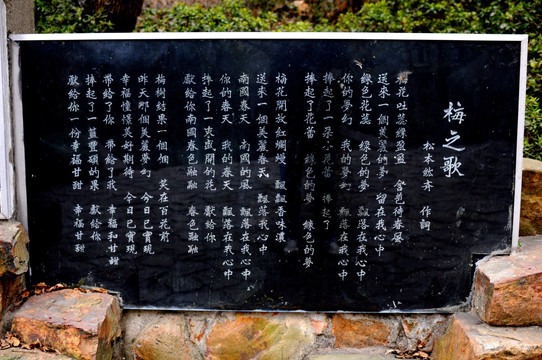 梅之歌
松本紘齊 作詞
梅花吐蕊綠盈盈 含苞待春風
送來一個美麗的夢 留在我心中
綠色花蕊 綠色的夢 飄落在我心中
你的夢幻 我的夢幻 飄落在我心中
捧起了一朵小花蕾 捧起了
捧起了花蕾 綠色的夢 綠色的夢
梅花開放紅爛熳 飄飄香味濃
送來一個美麗春天 飄落我心中
南國春天 南國的風 飄落在我心中
你的春天 我的春天 飄落在我心中
捧起了一束盛開的花 獻給你
獻給你南國春色融融 春色融融
梅樹結果一個個 笑在百花前
昨天那個美麗夢幻 今日已實現
幸福憧憬美好期待 今日已實現
帶給了你 帶給了我 幸福和甘甜
捧起了一籃豐碩的果 獻給你
獻給你一份幸福甘甜 幸福甘甜